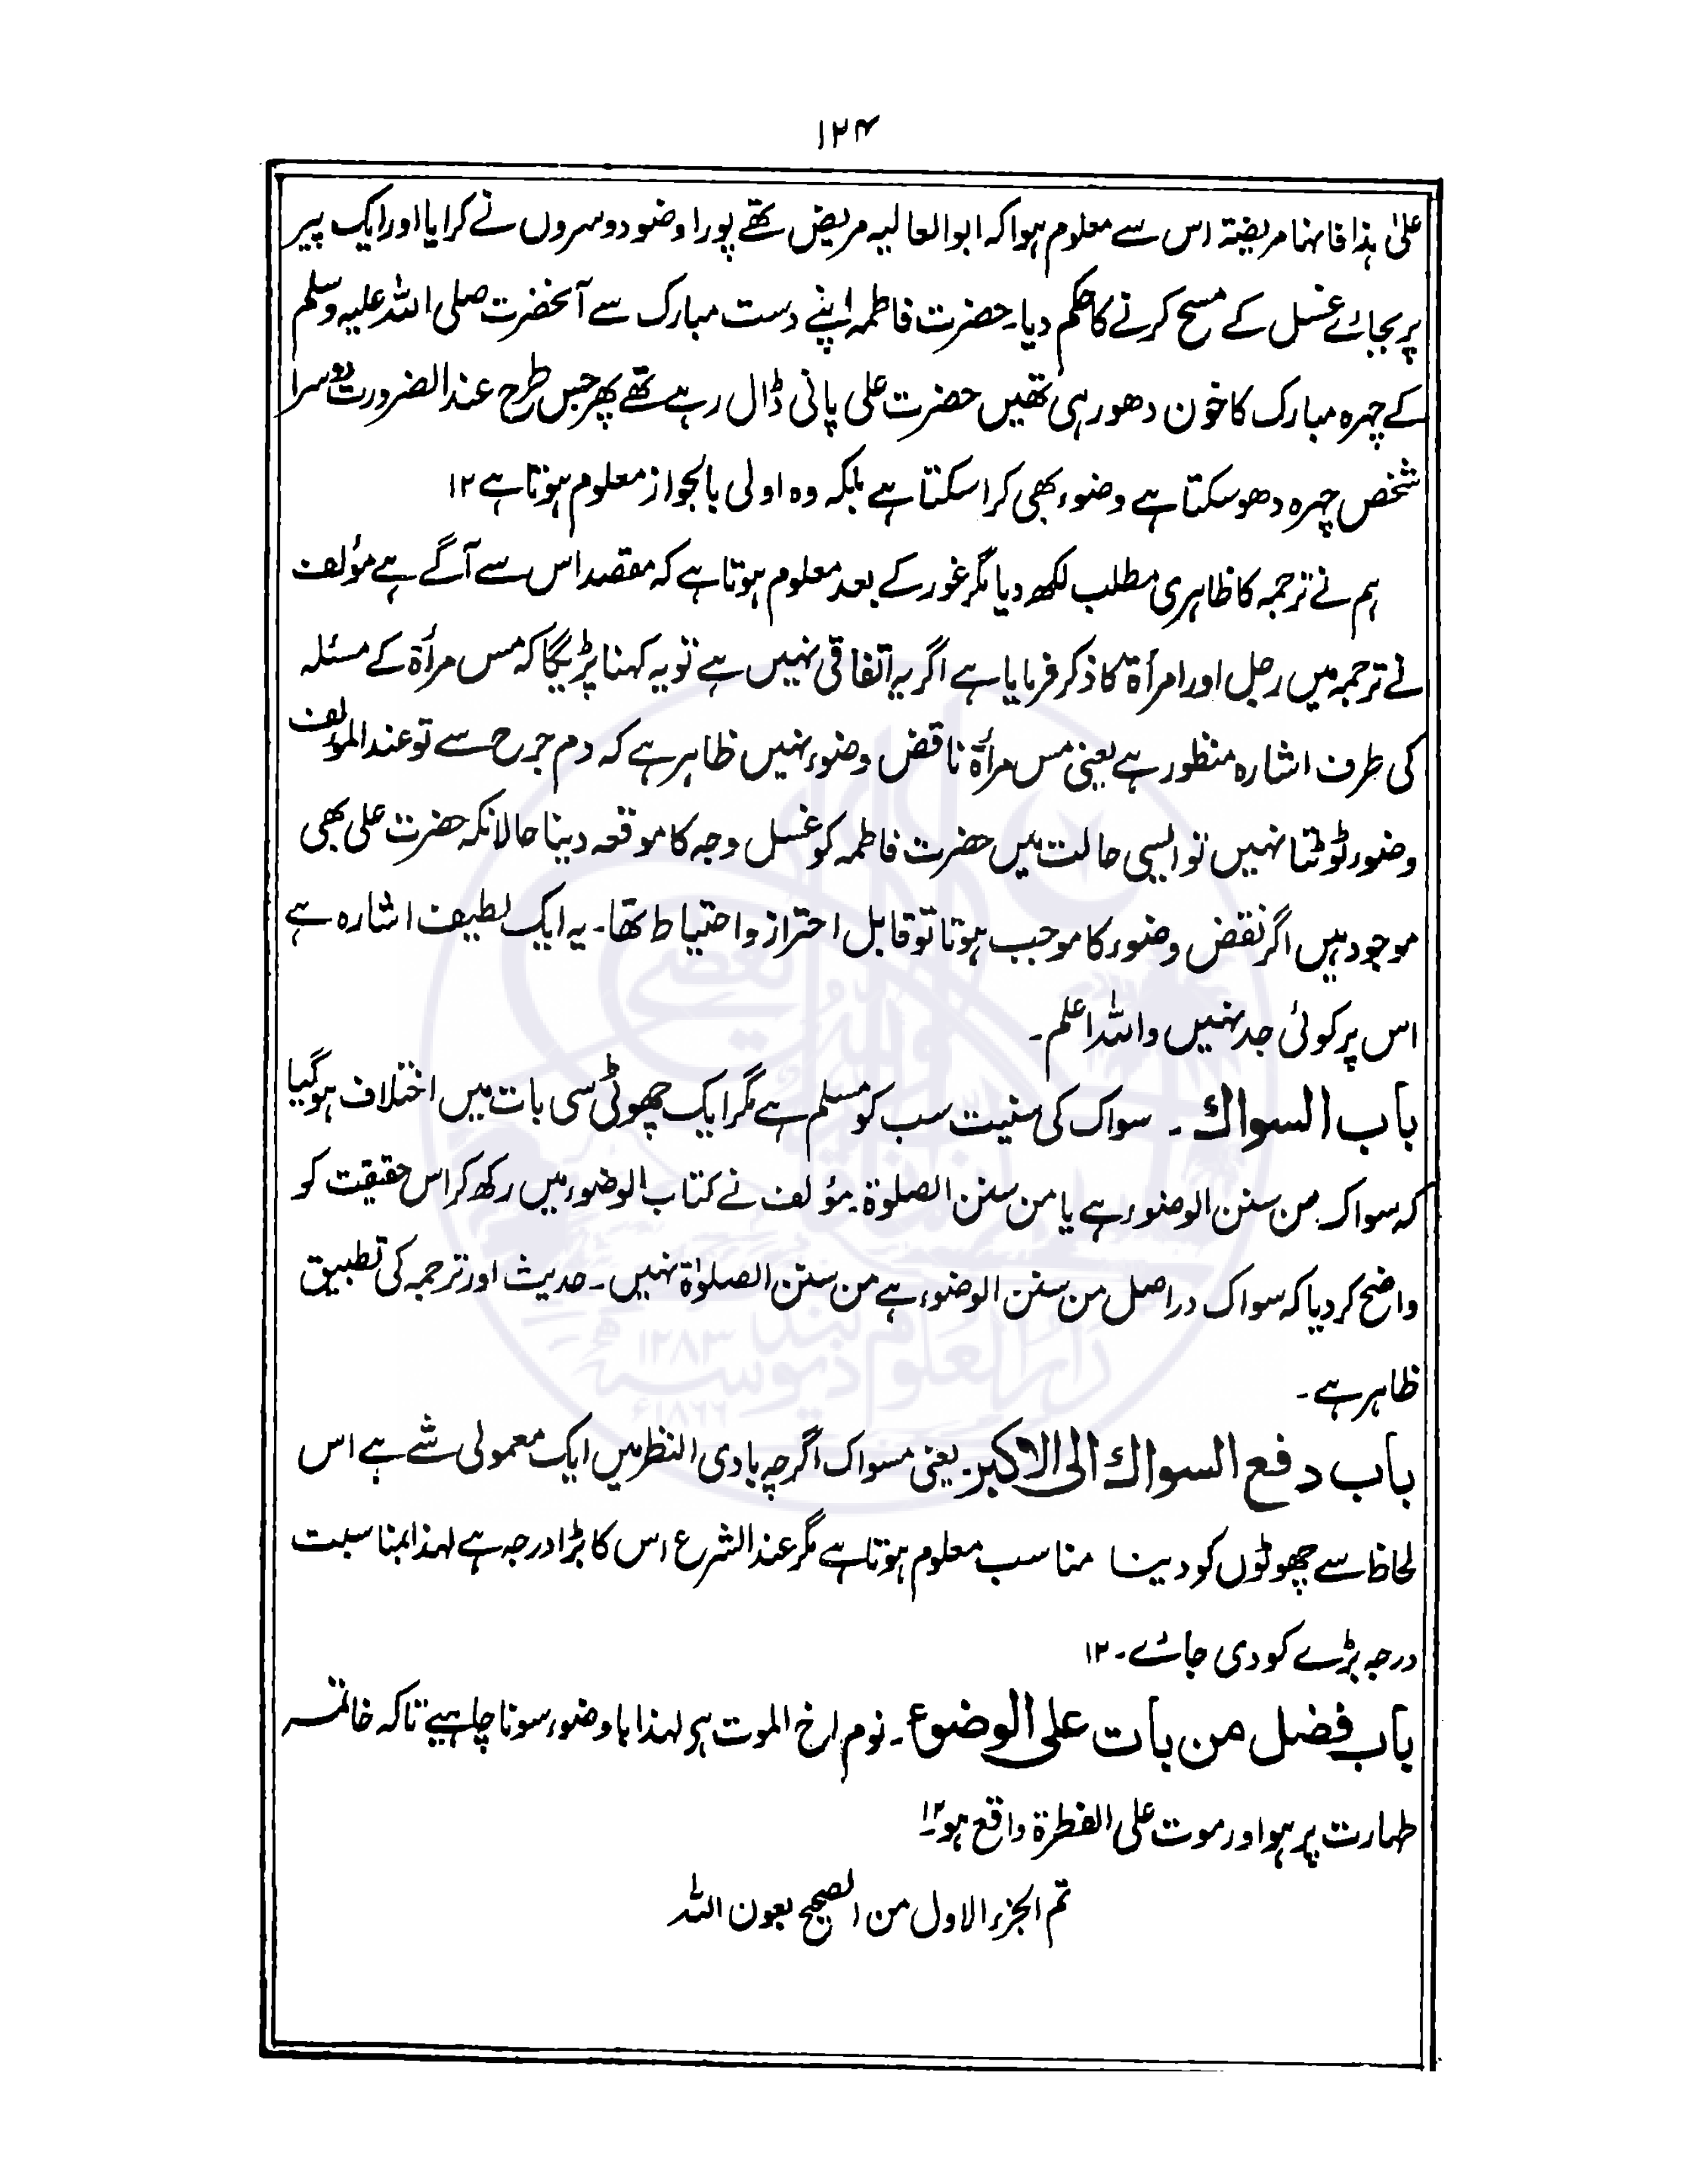 ۱۲۴
علیٰ ہذا فانہا مریضۃ اس سے معلوم ہوا کہ ابوالعالیہ مریض تھے پورا وضو دوسروں نے کرایا اور ایک پیر
پر بجائے غسل کے مسح کرنے کا حکم دیا۔ حضرت فاطمہ اپنے دست مبارک سے آنحضرت صلی اللہ علیہ وسلم
کے چہرہ مبارک کا خون دھو رہی تھیں حضرت علی پانی ڈال رہے تھے پھر جس طرح عند الضرورت دوسرا
شخص چہرہ دھو سکتا ہے وضوء بھی کرا سکتا ہے بلکہ وہ اولی بالجواز معلوم ہوتا ہے ۱۲
ہم نے ترجمہ کا ظاہری مطلب لکھ دیا مگر غور کے بعد معلوم ہوتا ہے کہ مقصد اس سے آگے ہے مؤلف
نے ترجمہ میں رجل اور امرأۃ کا ذکر فرمایا ہے اگر یہ اتفاقی نہیں ہے تو یہ کہنا پڑیگا کہ مس مرأۃ کے مسئلہ
کی طرف اشارہ منظور ہے یعنی مس مرأۃ ناقض وضوء نہیں ظاہر ہے کہ دم جرح سے تو عند المؤلف
وضوء ٹوٹتا نہیں تو ایسی حالت میں حضرت فاطمہ کو غسل وجہ کا موقعہ دینا حالانکہ حضرت علی بھی
موجود ہیں اگر نقض وضوء کا موجب ہوتا تو قابل احتراز و احتیاط تھا۔ یہ ایک لطیف اشارہ ہے
اس پر کوئی جد نہیں واللہ اعلم۔
باب السواك ۔ سواک کی سنیت سب کو مسلم ہے مگر ایک چھوٹی سی بات میں اختلاف ہوگیا
کہ سواک من سنن الوضوء ہے یا من سنن الصلوۃ۔ مؤلف نے کتاب الوضوء میں رکھ کر اس حقیقت کو
واضح کردیا کہ سواک دراصل من سنن الوضوء ہے من سنن الصلوٰۃ نہیں۔ حدیث اور ترجمہ کی تطبیق
ظاہر ہے۔
باب دفع السواك الى الاكبر۔ یعنی مسواک اگرچہ بادی النظر میں ایک معمولی شے ہے اس
لحاظ سے چھوٹوں کو دینا مناسب معلوم ہوتا ہے مگر عند الشرع اس کا بڑا درجہ ہے لہذا بمناسبت
درجہ بڑے کو دی جائے۔ ۱۲
باب فضل من بات على الوضوء۔ نوم اخ الموت ہے لہذا باوضوء سونا چاہیے تاکہ خاتمہ
طہارت پر ہو اور موت علی الفطرۃ واقع ہو ۱۲
تم الجزء الاول من الصحیح بعون اللہ
دار العلوم دیوبند
۱۲۸۳ھ
۱۸۶۶ء